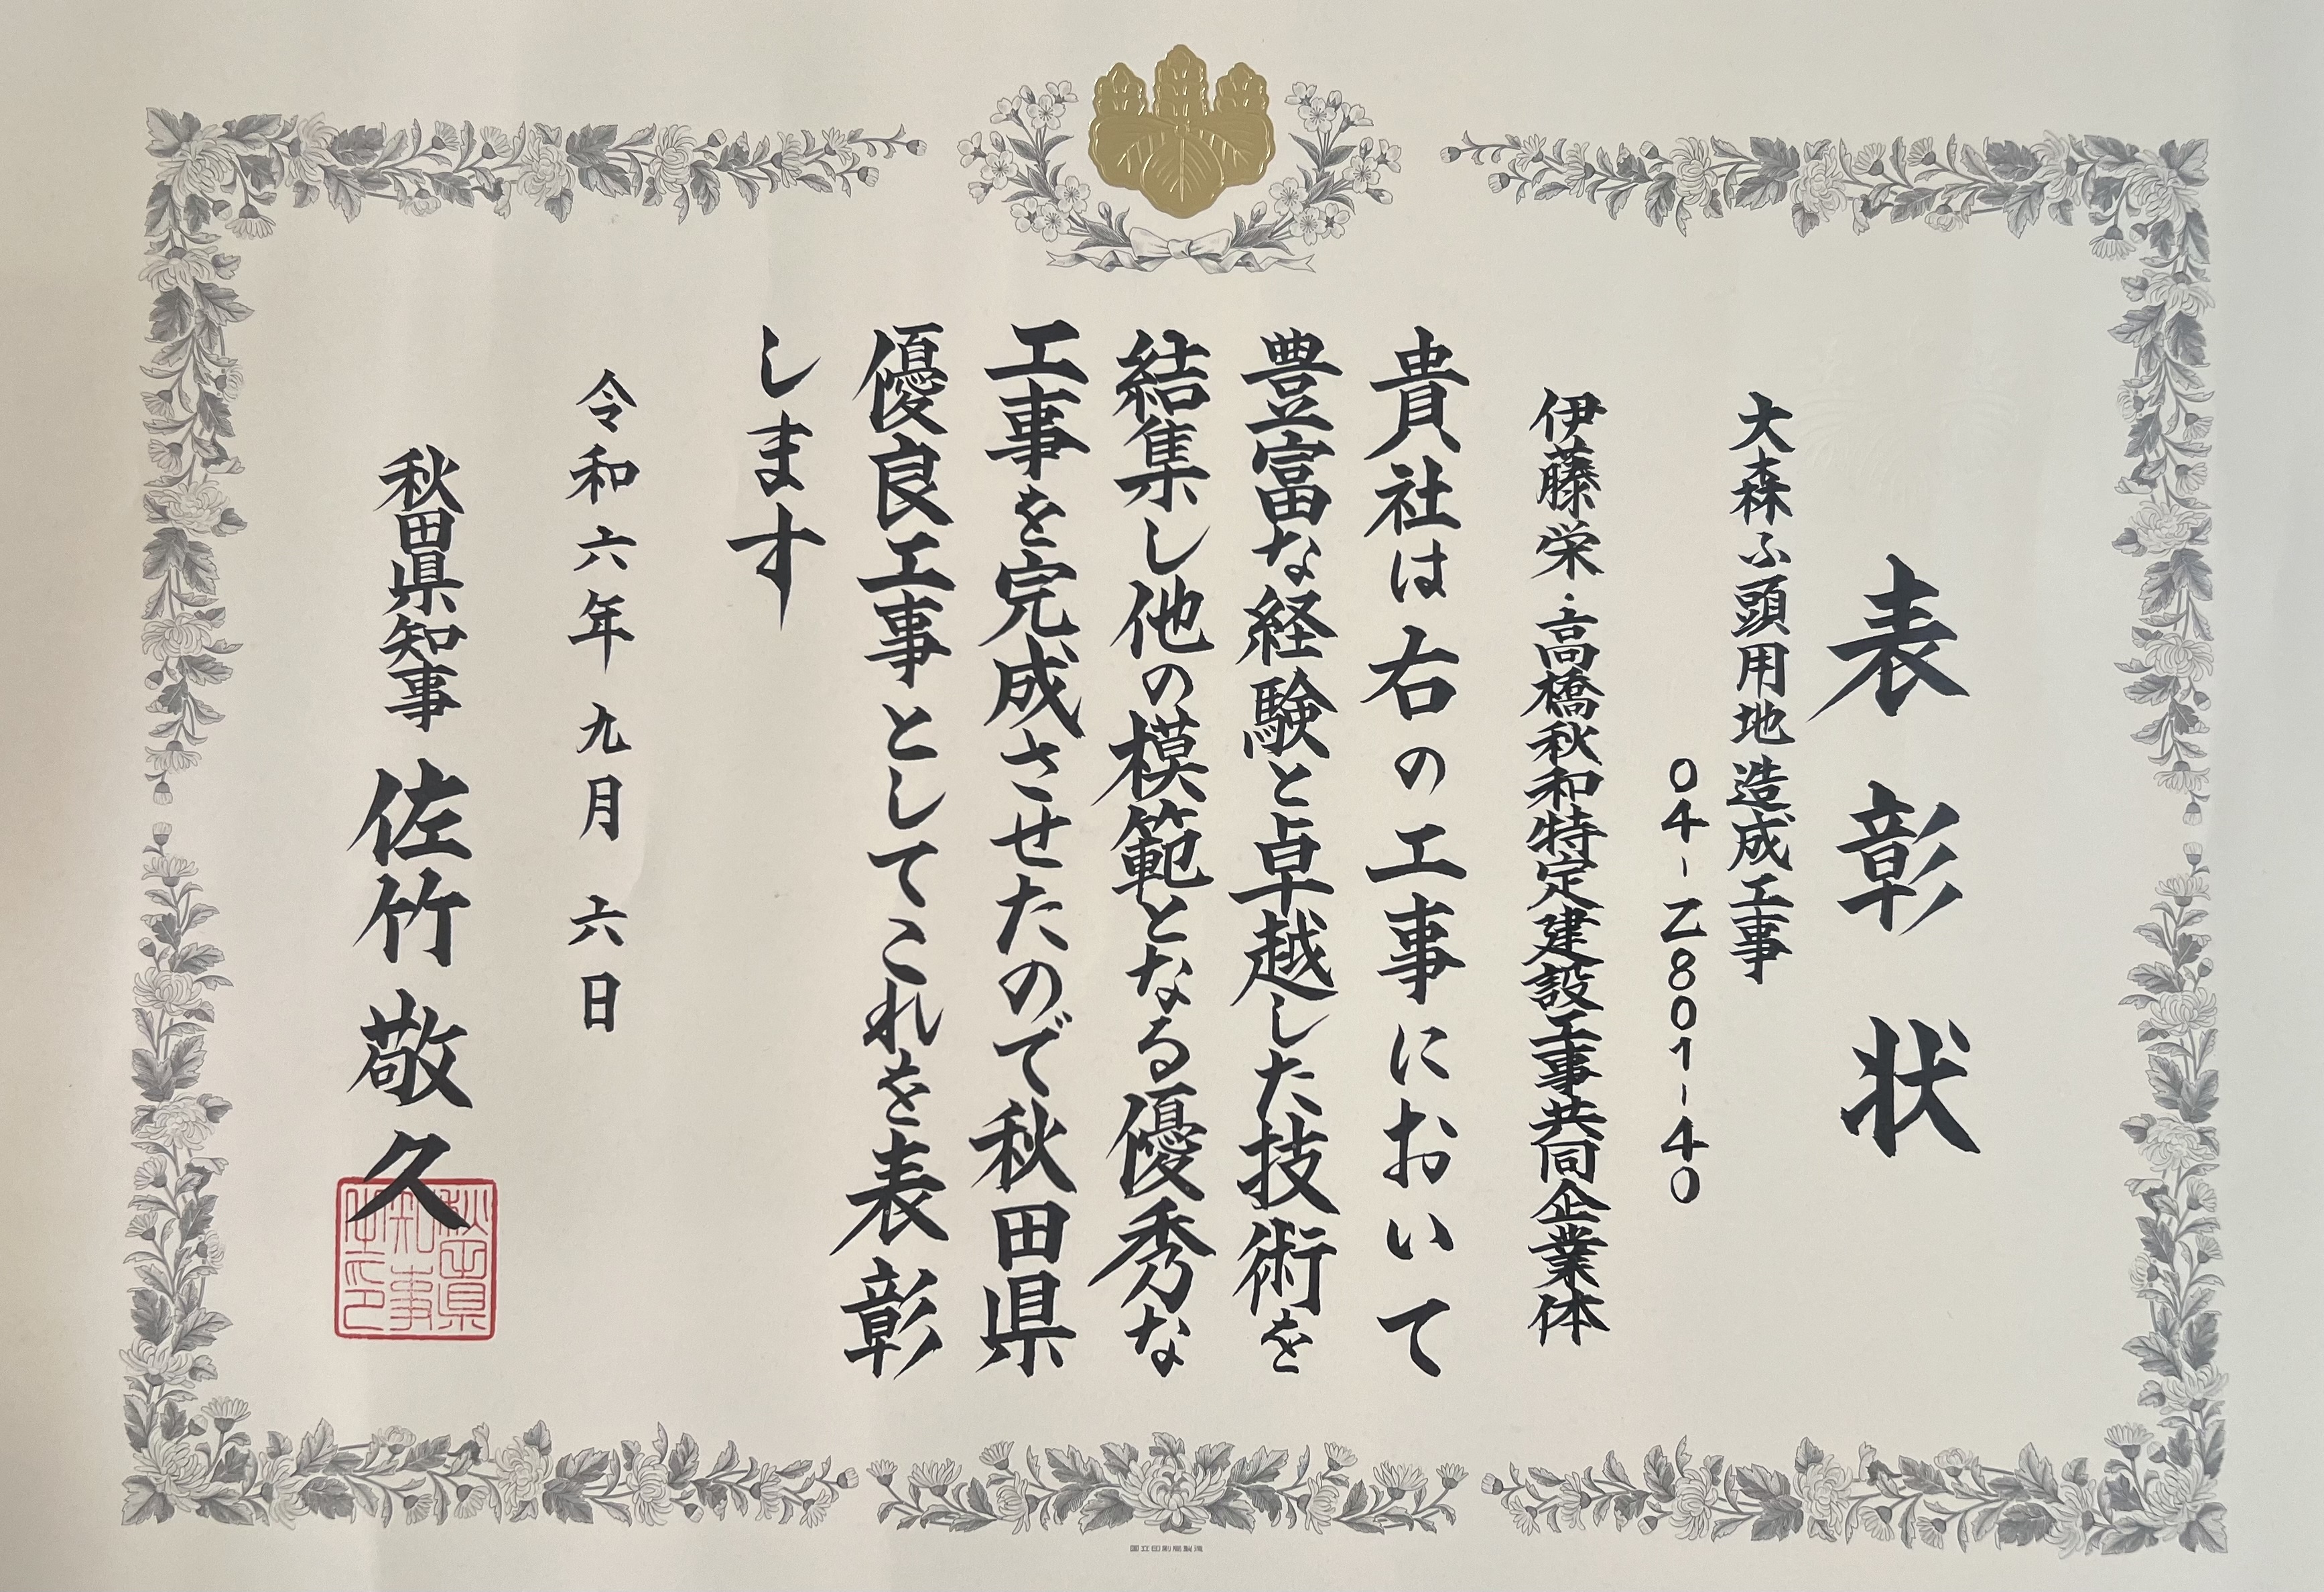 表彰状
大森ふ頭用地造成工事
04-Z801-40
伊藤栄・高橋秋和特定建設工事共同企業体
貴社は右の工事において
豊富な経験と卓越した技術を
結集し他の模範となる優秀な
工事を完成させたので秋田県
優良工事としてこれを表彰
します
令和六年九月六日
秋田県知事 佐竹敬久
秋田県
知事
之印
国立印刷局製造